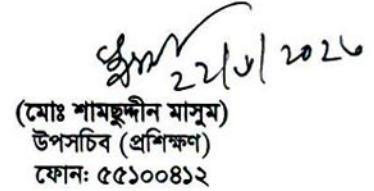 22/6/2026
(মোঃ শামছুদ্দীন মাসুম)
উপসচিব (প্রশিক্ষণ)
ফোন: ৫৫১০০৪১২